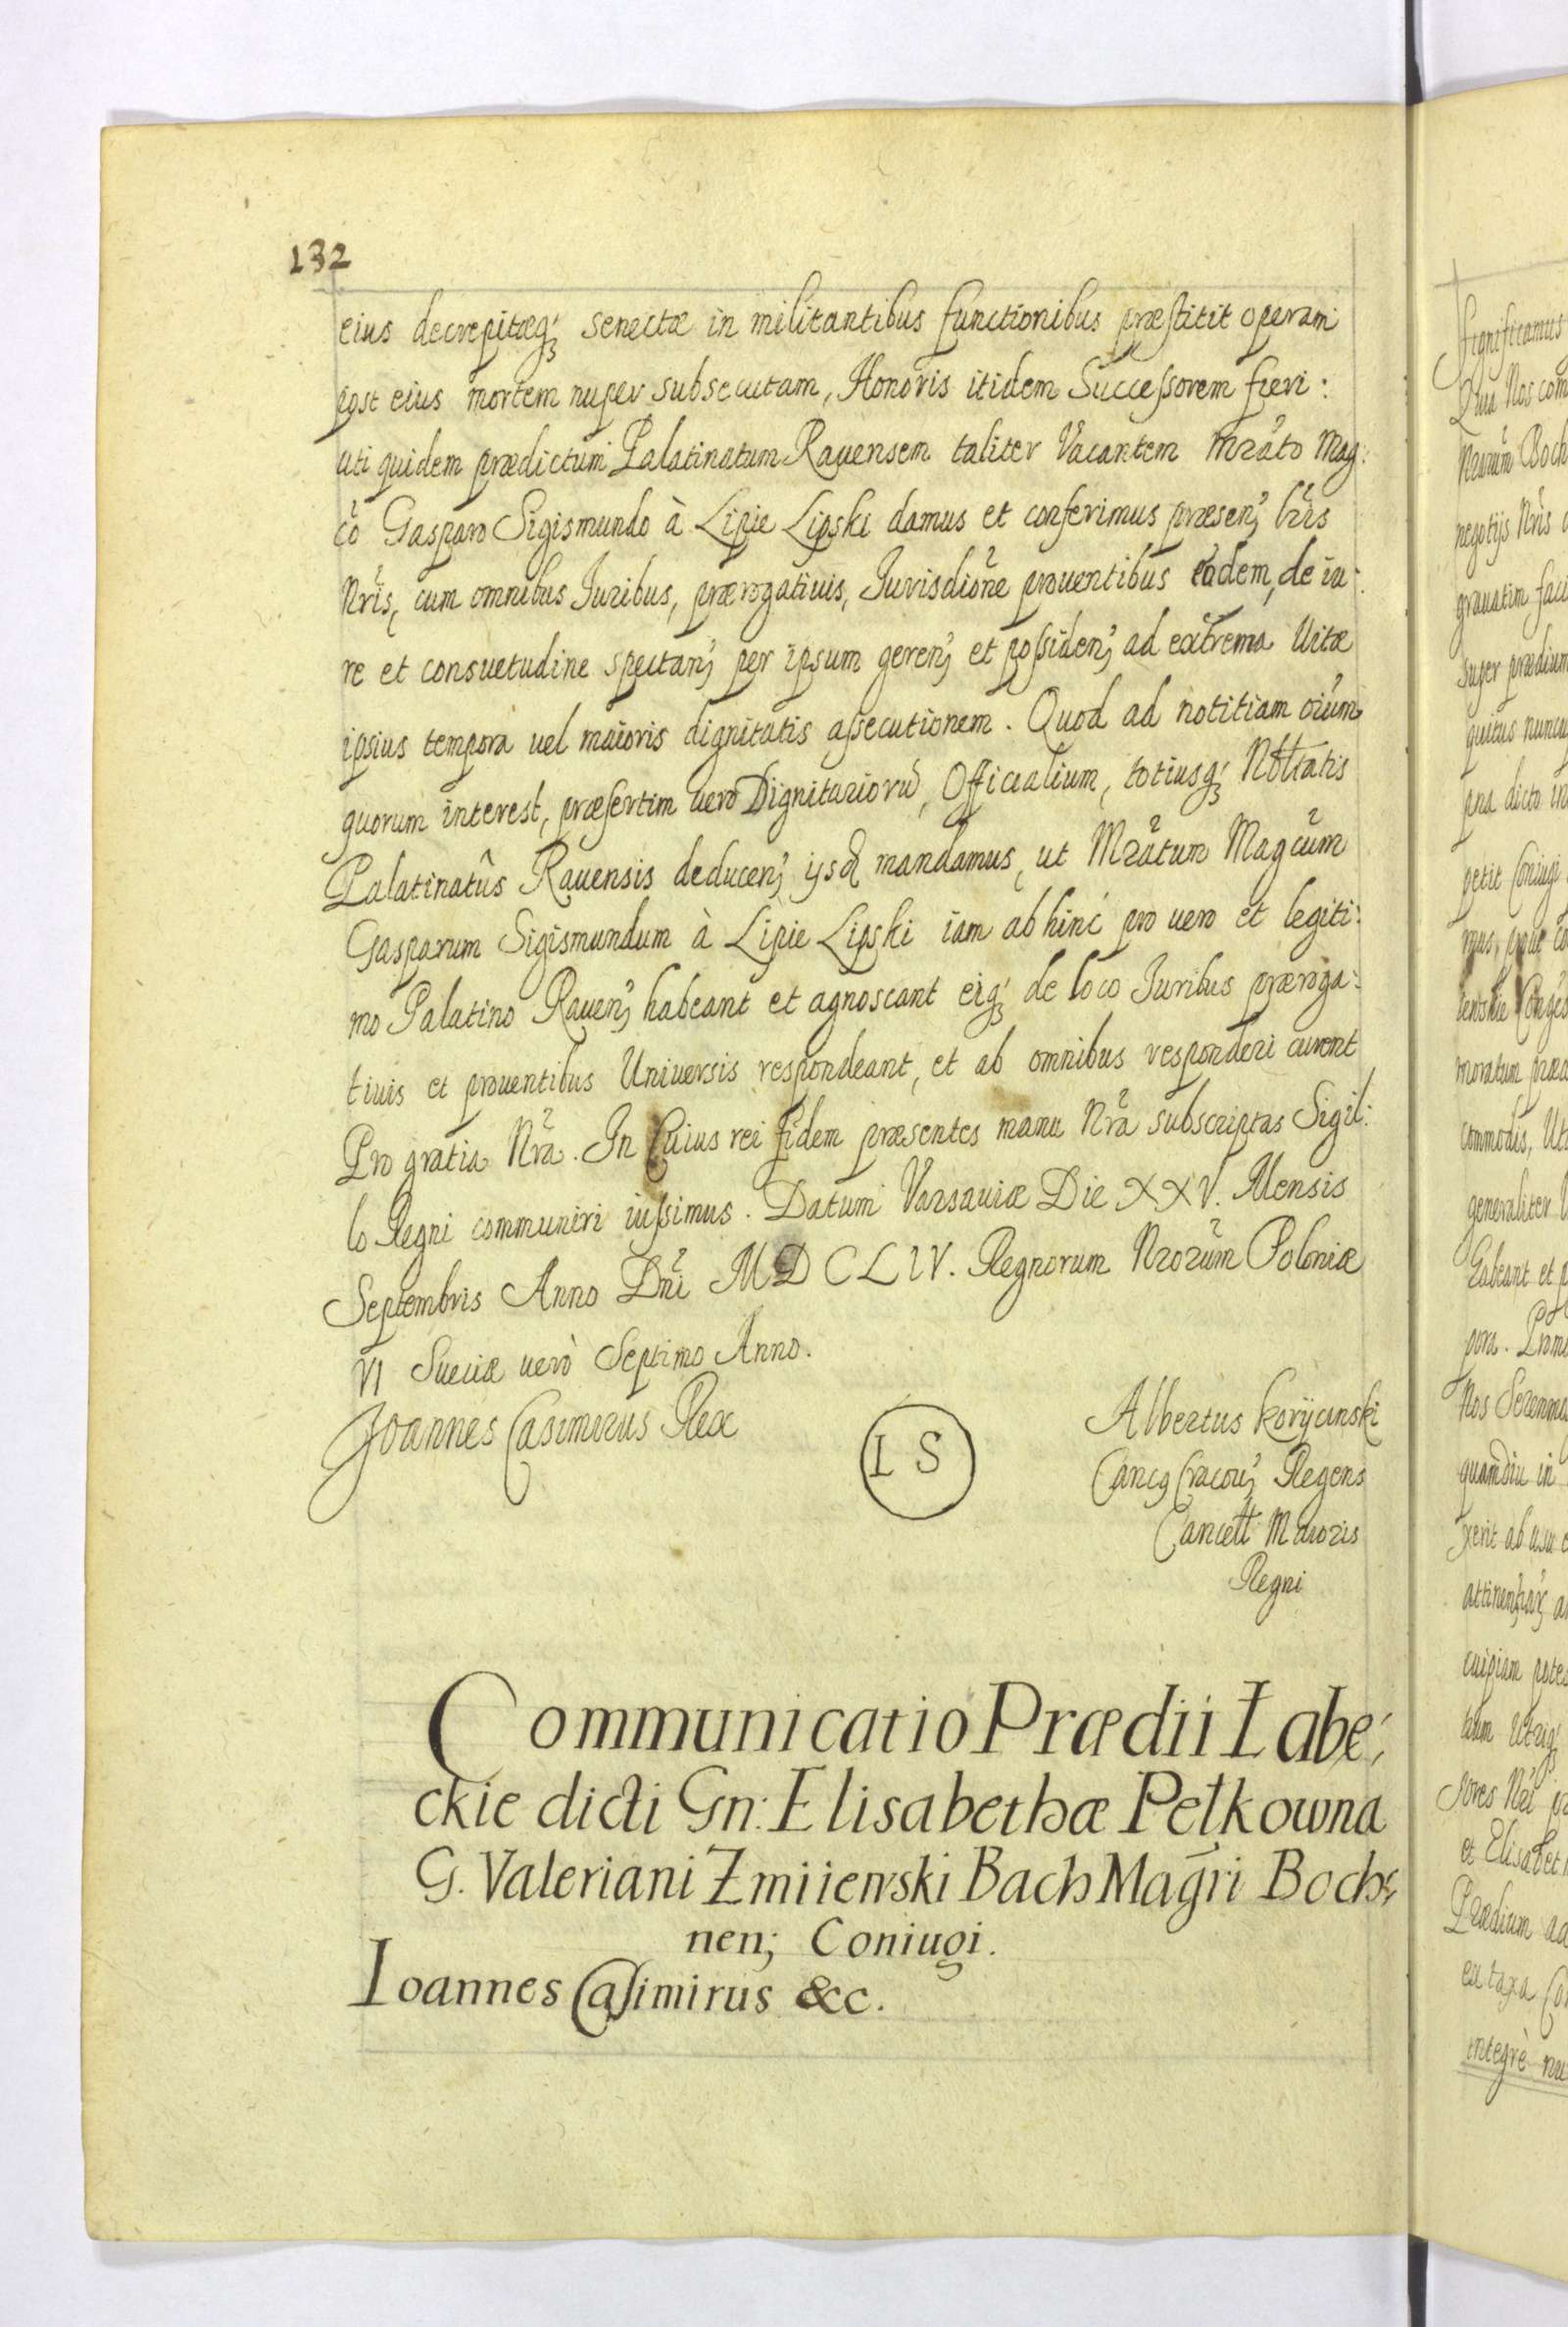 132
eius decrepitæq; senectæ in militantibus functionibus præstitit operam
post eius mortem nuper subsecutam, Honoris itidem Successorem fieri:
uti quidem prædictum Palatinatum Rauensem taliter Vacantem Mrãto Mag:
cõ Gasparo Sigismundo à Lipie Lipski damus et conferimus præsen; lrĩs
Nrĩs, cum omnibus Juribus, prærogatiuis, Jurisdiõne prouentibus eadem, de iu:
re et consuetudine spectan; per ipsum geren; et possiden; ad extrema Vitæ
ipsius tempora uel maioris dignitatis assecutionem. Quod ad notitiam oĩum
quorum interest, præsertim uero Dignitariorũ, Officialium, totiusq; Nbltatis
Palatinatûs Rauensis deducen; ijsd mandamus, ut Mrãtum Magcũm
Gasparum Sigismundum à Lipie Lipski iam ab hinc pro uero et legiti:
mo Palatino Rauen; habeant et agnoscant eiq; de loco Juribus præroga:
tiuis et prouentibus Uniuersis respondeant, et ab omnibus responderi curent
Pro gratia Nrã. In Cuius rei fidem præsentes manu Nrã subscriptas Sigil:
lo Regni communiri iussimus. Datum Varsauiæ Die XXV. Mensis
Septembris Anno Dnĩ MDCLIV. Regnorum Nrorũm Poloniæ
VI Sueciæ uerò Septimo Anno.
Joannes Casimirus Rex
L S
Albertus Korycinski
Cancq Cracou; Regens
Cancell Maioris
Regni
Communicatio Prædii Łabe:
ckie dicti Gn: Elisabethæ Pełkowna
G. Valeriani Żmiiewski Bach Magri Boch:
nen; Coniugi.
Ioannes Casimirus &c.
Significamus
Quia Nos com
Nrarum Boch
negotijs Nrĩs
grauatim faci
super prædium
quitus nuncu
pna dicto in
petit Coniugi
moratum præ
commodis, Ut
generaliter
habeant et p
pora. Promi
Nos Serenni
quamdiu in
xerit ab usu
cuipiam potes
et Elisabet
Prædium ad
integrè nu